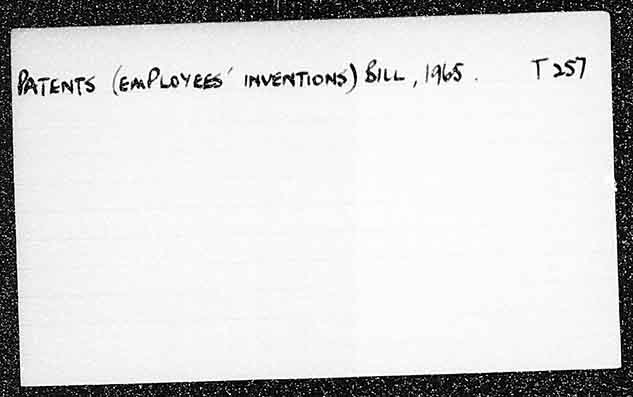 PATENTS (EMPLOYEES' INVENTIONS) BILL, 1965. T 257